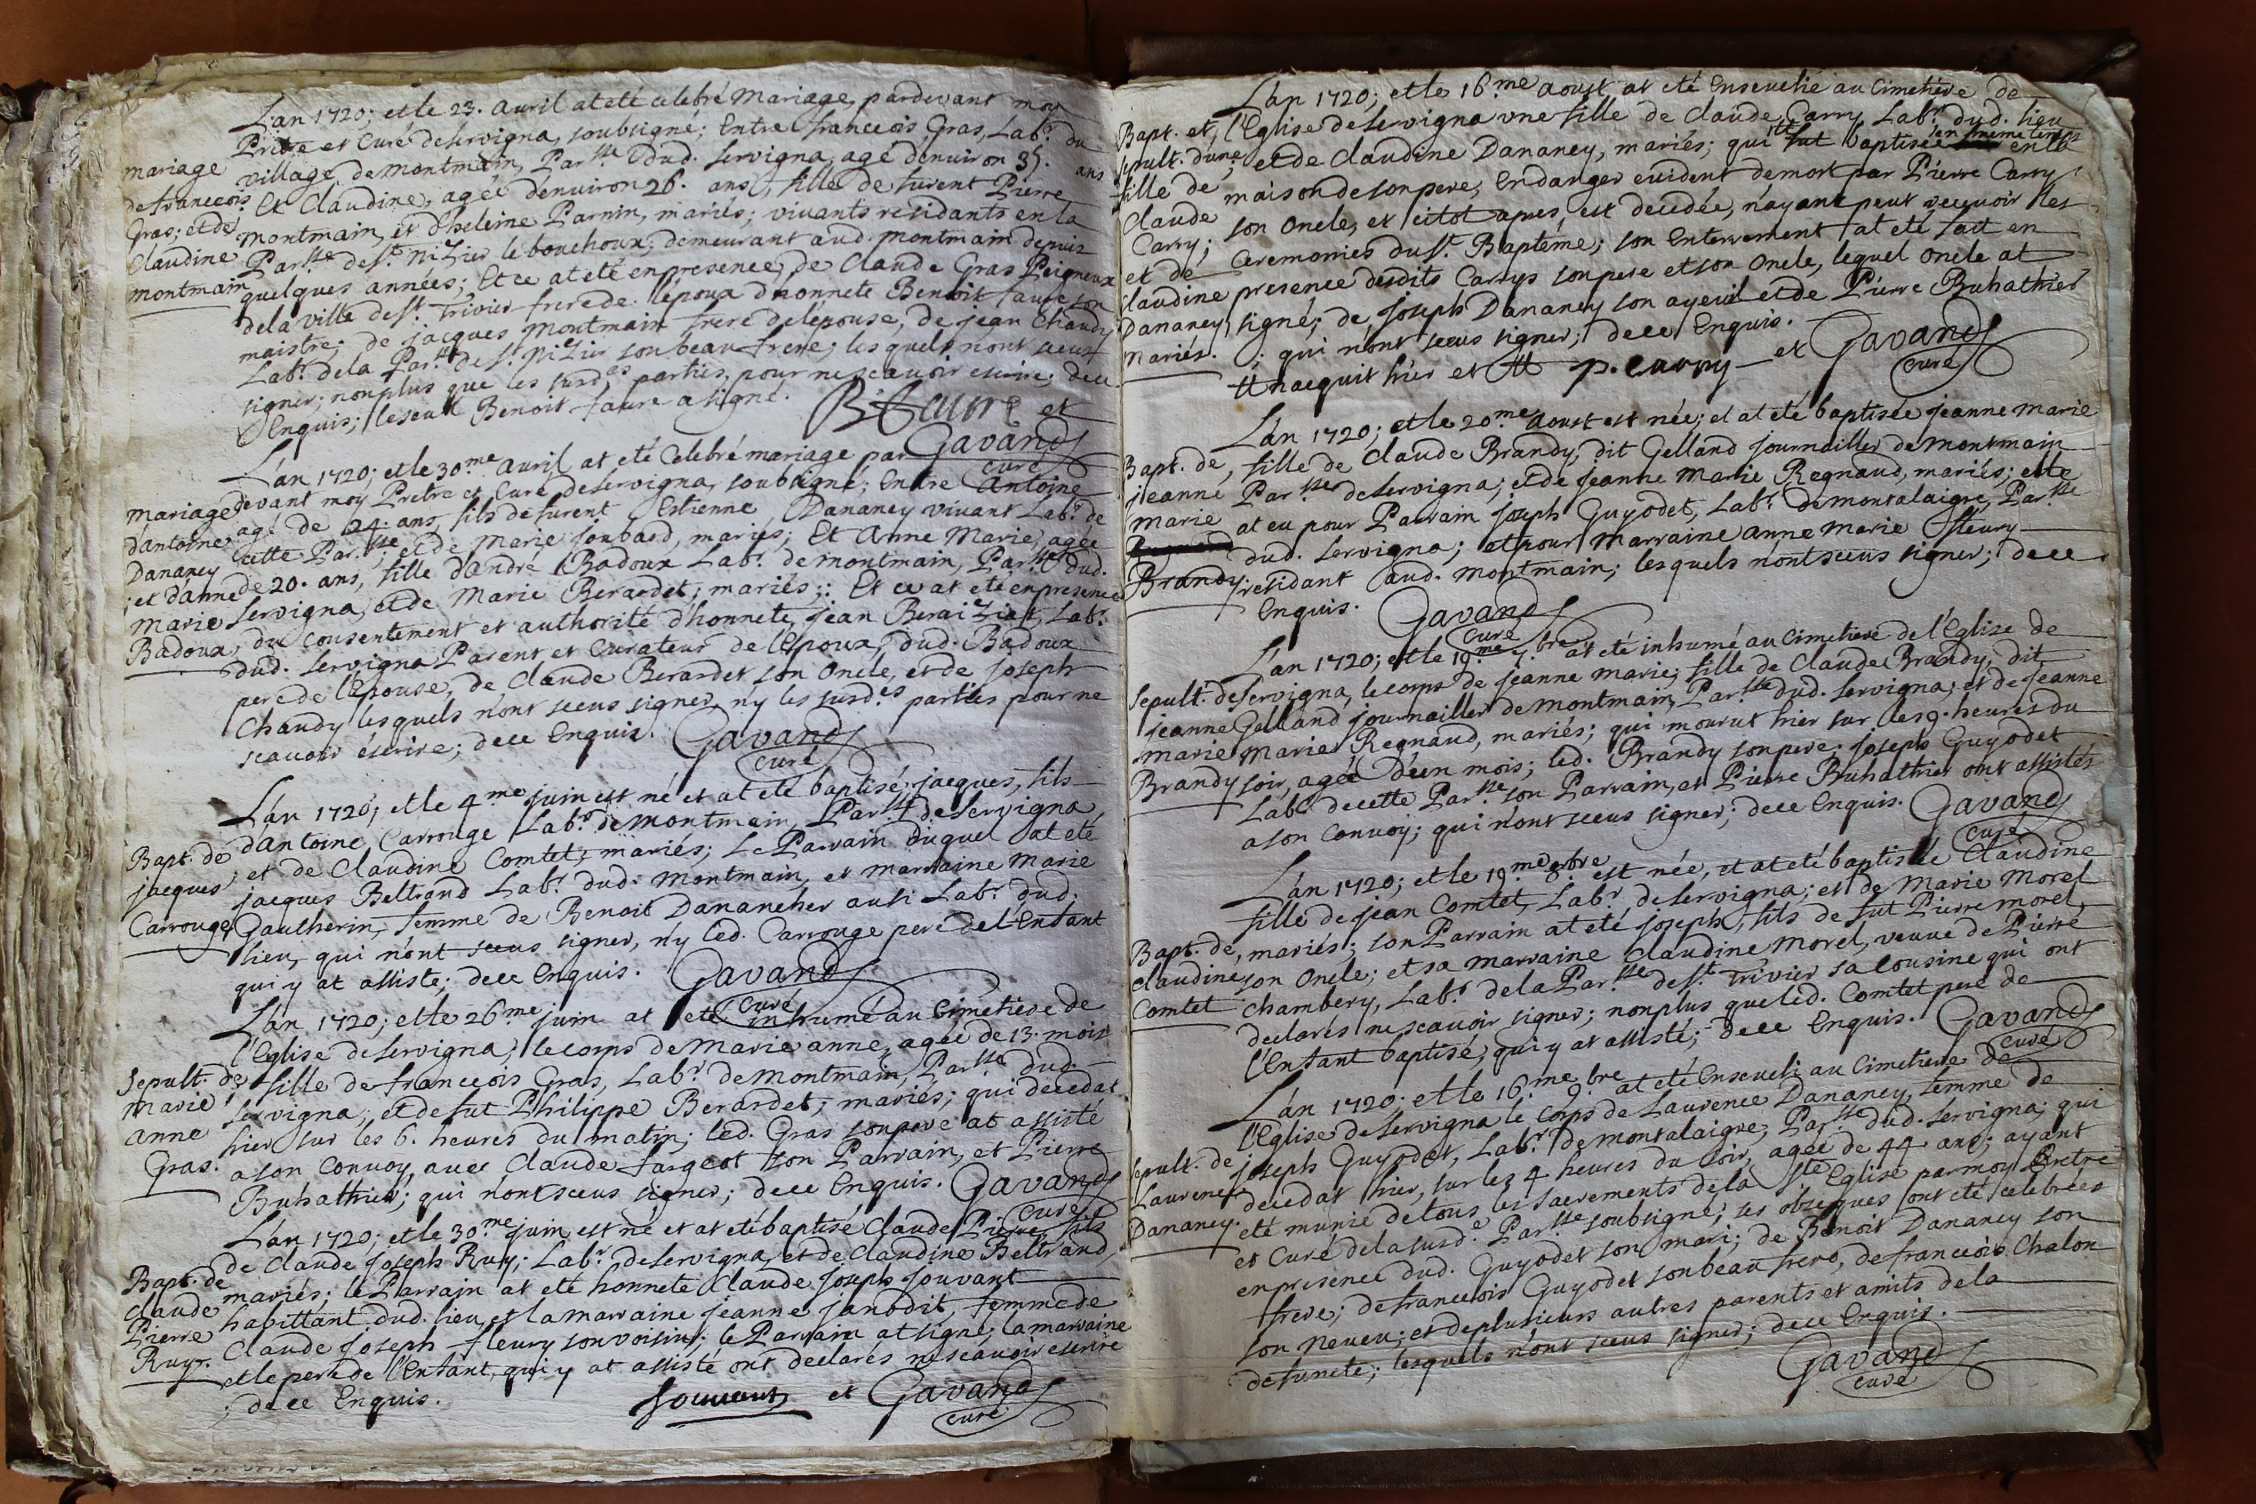 L'an 1720; et le 23. avril at eté celebré Mariage, pardevant moy
Prêtre et Curé de Servigna, soubsigné; Entre francois Gras, Lab.r du
mariage
village de montmain, Par.sse dud. Servigna, agé denviron 35. ans
de francois
Et Claudine, agée denviron 26. ans, fille de furent Pierre
Gras; et de
montmain, et d'heleine Parnin, mariés; vivants residants en la
Claudine
Par.sse de S.t Nizier le bouchoux; demeurant aud. montmain depuis
montmain
quelques années; Et ce at eté en presence, de Claude Gras Peigneux
de la ville de S.t Trivier frere de l'époux d'honnete Benoit faure son
maistre; de jacques Montmain frere de lepouse, de jean Chaudy
Lab.r de la Par.sse de S.t Nizier son beau frere; lesquels n'ont sceus
signer; nonplus que les susd.es parties, pour ne scavoir escrire; de ce
Enquis; le seul Benoit faure a signé. B. faure et
Gavand
curé
L'an 1720; et le 30.me avril at eté Celebré mariage par
mariage
devant moy Pretre et Curé de Servigna, soubsigné; Entre Antoine
d'antoine
agé de 24. ans, fils de furent Estienne Dananey vivant Lab.r de
Dananey
cette Par.sse; et de Marie Joubard, mariés; Et Anne Marie, agée
; et d'anne
de 20. ans, fille d'andré Badoux Lab.r de montmain, Par.sse dud.
marie
Servigna, et de Marie Berardet; mariés;: Et ce at eté en presence
Badoux,
du consentement et authorité d'honnete, jean Beraiziat, Lab.r
dud. Servigna Parent et Curateur de l'Epoux, dud. Badoux
pere de l'Epouse, de Claude Berardet son Oncle, et de Joseph
Chaudy lesquels n'ont sceus signer, n'y les susd.es parties pour ne
scavoir escrire; de ce Enquis. Gavand
curé
L'an 1720; et le 4.me juin est né et at eté baptisé jacques, fils
Bapt. de
d'Antoine Carrouge Lab.r de Montmain, Par.sse de Servigna
jacques
; et de Claudine Comtet; mariés; Le Parrain duquel at eté
Carrouge
jacques Beltrand Lab.r dud. Montmain, et marraine Marie
Gaultherin, femme de Benoit Danancher ausi Lab.r dud.
lieu, qui n'ont sceus signer, n'y led. Carrouge pere de l'Enfant
qui y at assisté; de ce Enquis. Gavand
curé
L'an 1720; et le 26.me juin at eté inhumé au Cimetiere de
l'Eglise de Servigna, le corps de Marie anne, agée de 13. mois
Sepult. de
fille de francois Gras, Lab.r de Montmain, Par.sse dud.
Marie
Servigna; et de fut Philippe Berardet; mariés; qui decedat
anne
hier sur les 6. heures du matin; led. Gras son pere at assisté
Gras.
a son Convoy, avec Claude fargeot son Parrain, et Pierre
Buhathier; qui n'ont sceus signer; de ce Enquis. Gavand
curé
L'an 1720; et le 30.me juin est né et at eté baptisé Claude Pierre, fils
de Claude Joseph Ruy; Lab.r de Servigna et de Claudine Beltrand,
Bapt. de
mariés; le Parrain at eté honnete Claude Joseph Jouvant
Claude
habittant dud. lieu, et la marraine jeanne janodit, femme de
Pierre
Claude Joseph fleury son voisin; le Parrain at signé; la marraine
Ruy.
et le pere de l'Enfant, qui y at assisté ont declarés ne scavoir escrire
; de ce Enquis. Jouvent et Gavand
curé
L'an 1720; et le 16.me aoust at eté Enseuelie au Cimetiere de
Bapt. et
l'Eglise de Servigna une fille de Claude, Carry Lab.r dud. lieu
sepult. d'une
, et de Claudine Dananey, mariés; qui fut baptisée en meme tems en la
fille de
maison de son pere, En danger evident de mort par Pierre Carry
Claude
son Oncle, et sitot apres, est decedée, n'ayant peut recevoir les
Carry;
Ceremonies du S.t Baptême; son Enterrement at eté fait en
et de
presence desdits Carrys son pere et son Oncle, lequel Oncle at
Claudine
signé; de Joseph Dananey son ayeul et de Pierre Buhathier
Dananey
; qui n'ont sceus signer; de ce Enquis.
Mariés.
# nacquit hier et # p. carry et Gavand
curé
L'an 1720; et le 20.me aoust est née; et at eté baptisée jeanne marie
Bapt. de
, fille de Claude Brandy, dit Gelland journailler de montmain
jeanne
Par.sse de Servigna; et de jeanne Marie Regnaud, mariés; elle
marie
at eu pour Parrain Joseph Guyodet, Lab.r de montalaigre, Par.sse
dud. Servigna; et pour Marraine anne Marie fleury
Brandy.
residant aud. Montmain; lesquels n'ont sceus signer; de ce
Enquis. Gavand
curé
L'an 1720; et le 19.me 7.bre at eté inhumé au Cimetiere de l'Eglise de
Sepult. de
Servigna, le corps de jeanne marie, fille de Claude Brandy, dit
jeanne
Gelland journailler de montmain, Par.sse dud. Servigna; et de jeanne
marie
Marie Regnaud, mariés; qui mourut hier sur les 9. heures du
Brandy
soir, agée d'un mois; led. Brandy son pere. Joseph Guyodet
Lab.r de cette Par.sse son Parrain, et Pierre Buhathier ont assistés
a son Convoy; qui n'ont sceus signer; de ce Enquis. Gavand
curé
L'an 1720; et le 19.me 8.bre est née, et at eté baptisée Claudine
fille de jean Comtet, Lab.r de Servigna; et de Marie Morel
Bapt. de
, mariés; son Parrain at eté Joseph, fils de fut Pierre morel,
Claudine
son Oncle; et sa Marraine Claudine Morel, veuve de Pierre
Comtet
Chambery, Lab.r de la Par.sse de S.t Trivier sa Cousine qui ont
declarés ne scavoir signer; nonplus que led. Comtet pere de
l'Enfant baptisé, qui y at assisté; de ce Enquis. Gavand
curé
L'an 1720. et le 16.me 9.bre at eté Enseueli au Cimetiere de
l'Eglise de Servigna le corps de Laurence Dananey, femme de
Sepult. de
Joseph Guyodet, Lab.r de montalaigre, Par.sse dud. Servigna; qui
Laurence
decedat hier, sur les 4 heures du soir, agée de 44 ans; ayant
Dananey.
eté munie de tous les sacrements de la S.te Eglise par moy Pretre
et Curé de la susd.e Par.sse soubsigné; ses obseques ont eté celebrées
en presence dud. Guyodet son mari; de Benoit Dananey son
frere; de francois Guyodet son beau frere, de francois Chalon
son neveu; et de plusieurs autres parents et amits de la
defuncte; lesquels n'ont sceus signer; de ce Enquis.
Gavand
curé